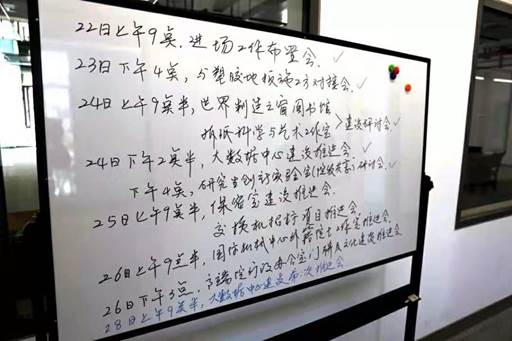 22日上午9点.进场工作布置会.✓
23日下午4点,与塑胶地板施工对接会.✓
24日上午9点半,世界制造之窗图书馆
科学与艺术工作室>建设研讨会✓
24日下午2点半,大数据中心建设推进会✓
下午4点,研究生创新实验室研讨会.✓
25日上午9点半,保密室建设推进会.
交换机招标项目推进会.
26日上午9点半,国际机械中心外籍院士工作室推进会
26日下午3点,高端院行政办公室门牌及文化建设推进会
28日上午9点半,大数据中心建设第二次推进会